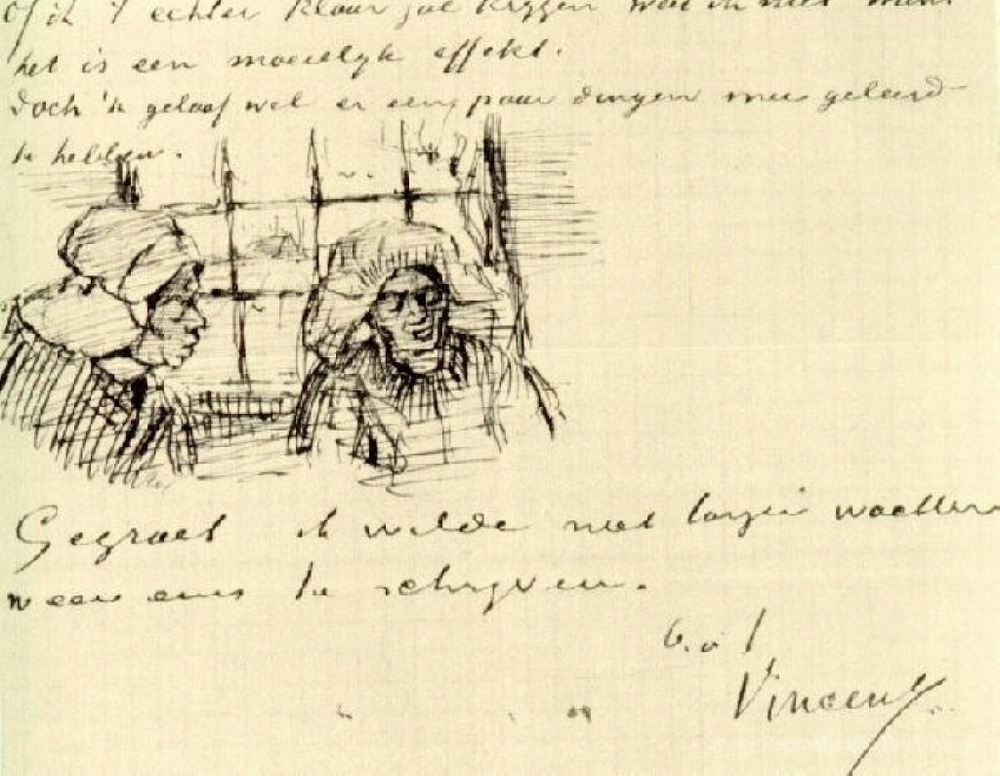 Of ik 't echter klaar zal krijgen weet ik niet want
het is een moeielijk effekt.
Doch 'k geloof wel er een paar dingen mee geleerd
te hebben.
Gegroet ik wilde niet langer wachten
weer eens te schrijven.
b.à.t.
Vincent